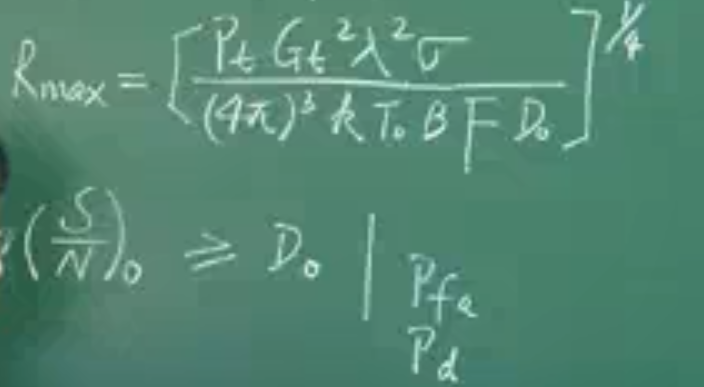 Rmax = [ Pt Gt²λ²σ / (4π)³ k T₀ B F D₀ ]^1/4
(S/N)₀ ≥ D₀ | Pfa
Pd